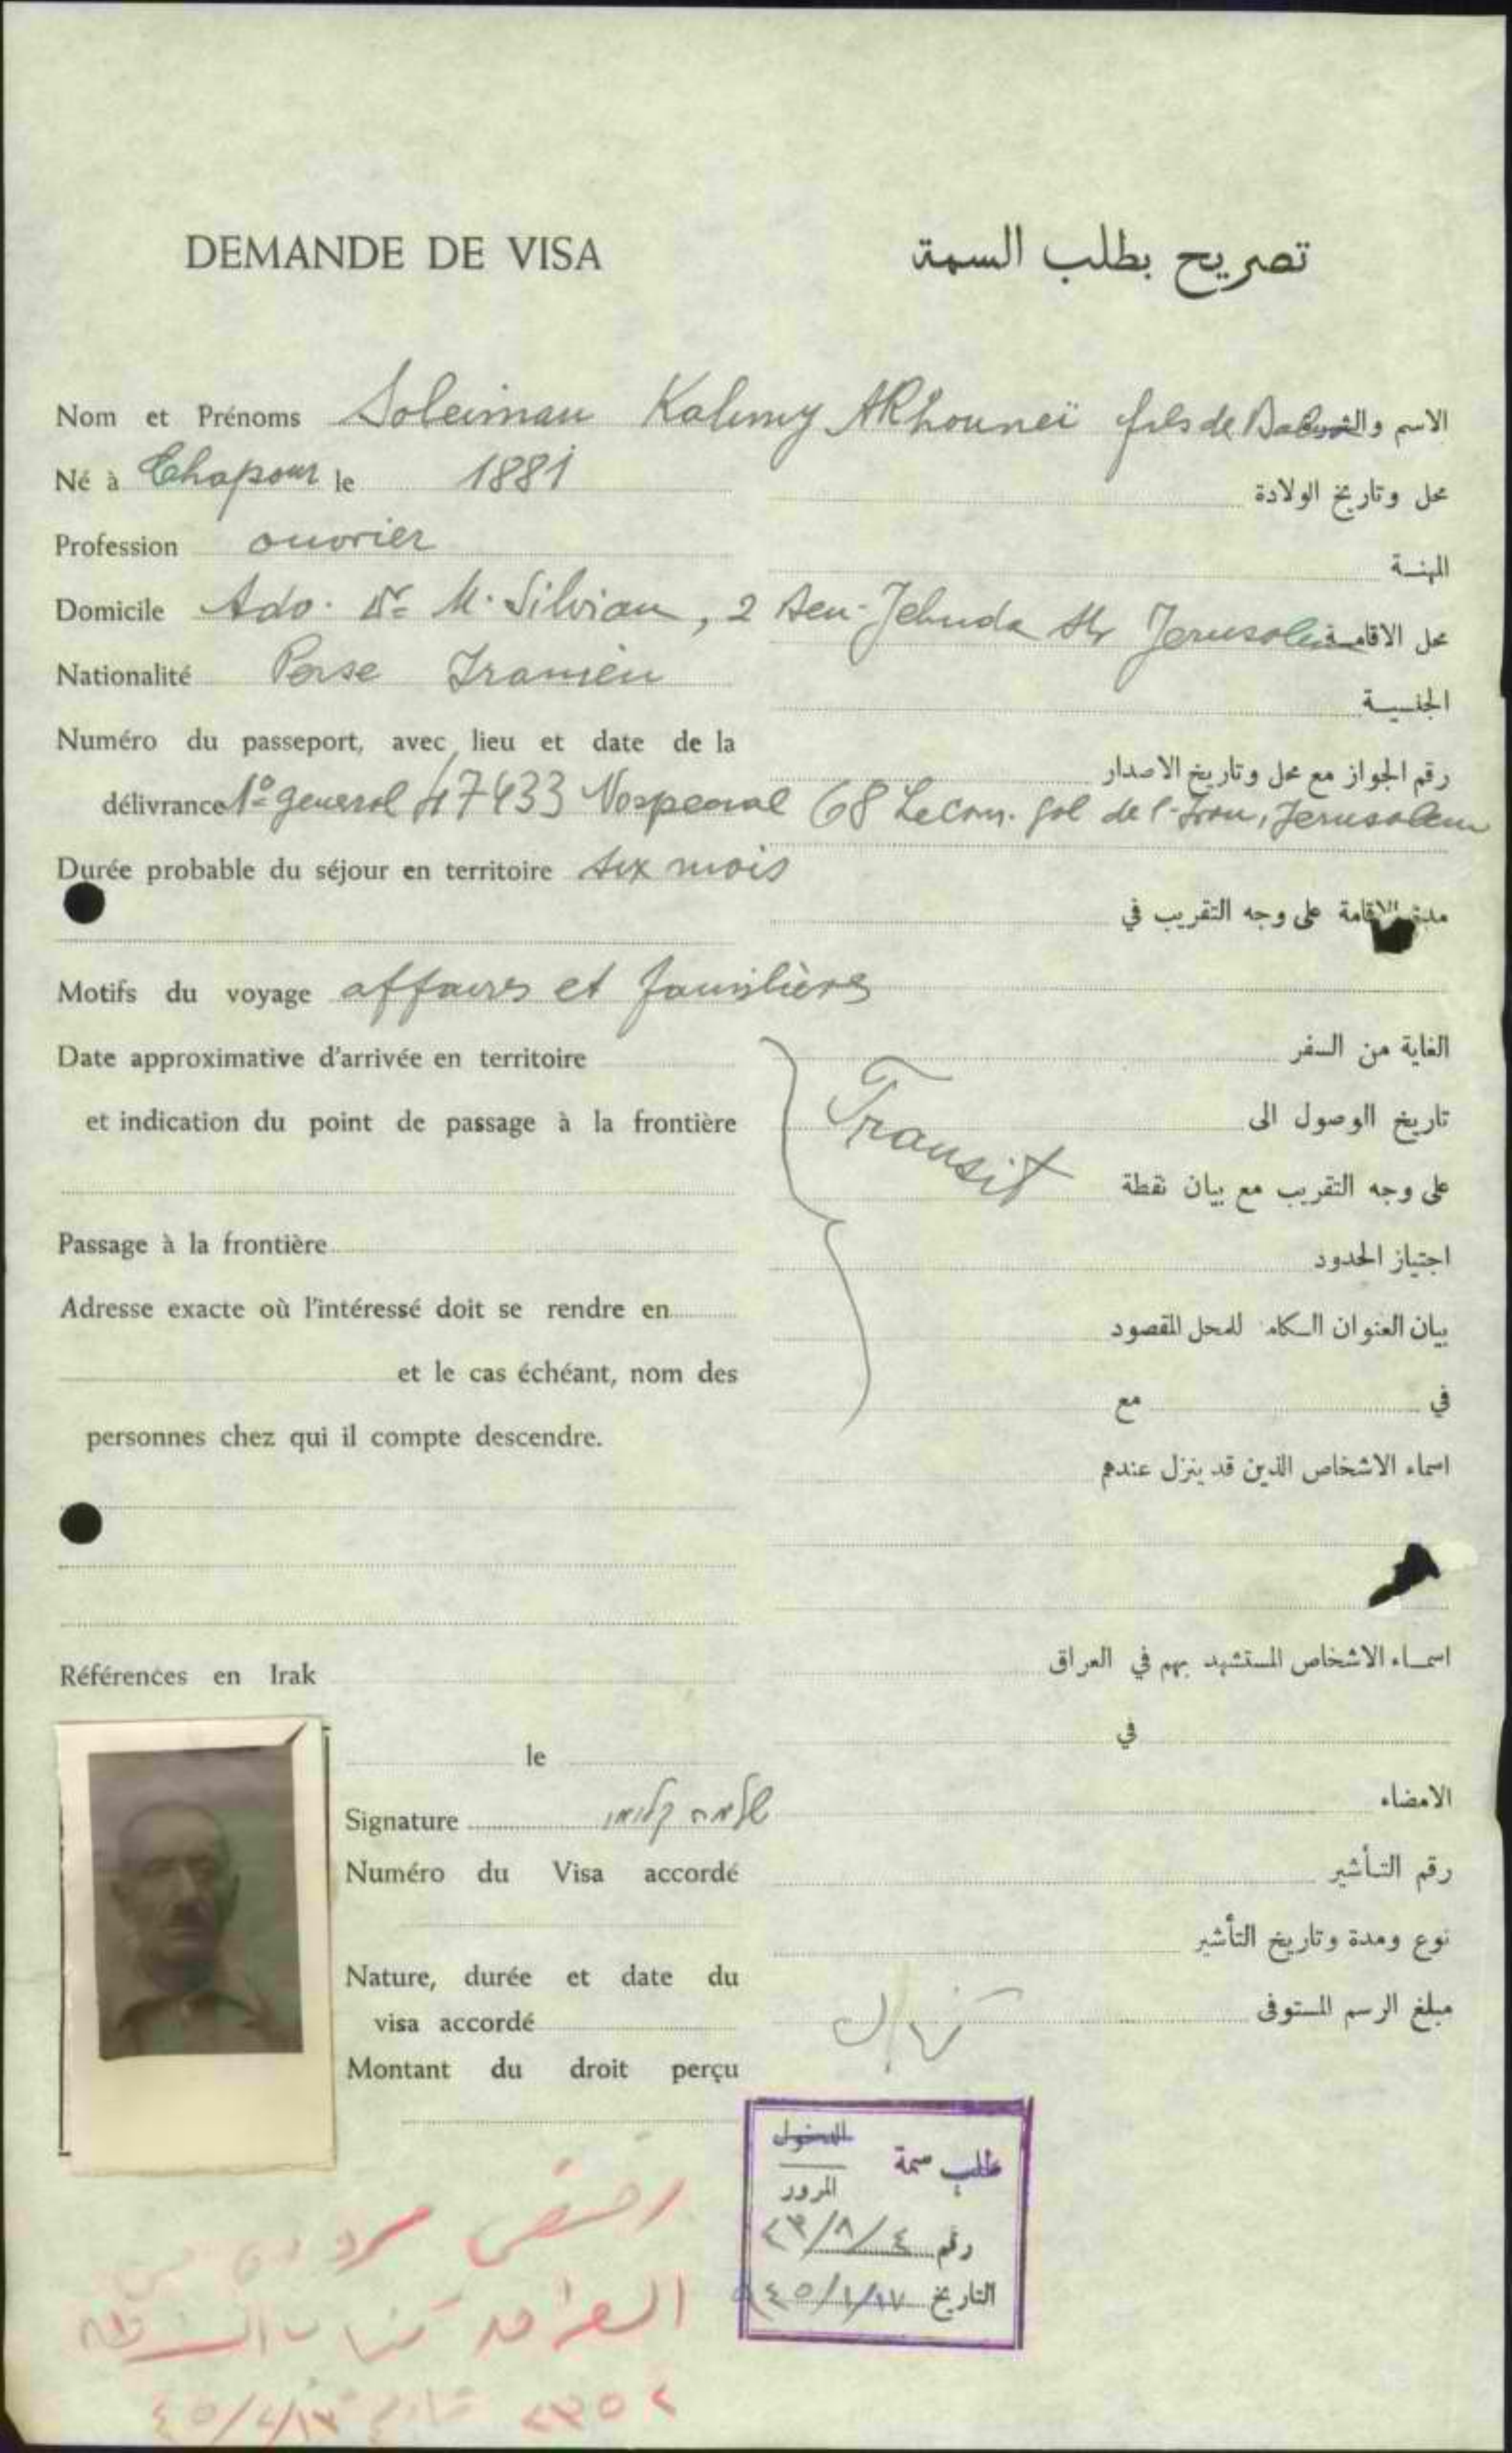 DEMANDE DE VISA
تصريح بطلب السمة
Nom et Prénoms Soleiman Kalimy Akhouneï fils de
الاسم
Né à Chapour le 1881
محل وتاريخ الولادة
Profession ouvrier
المهنـة
Domicile Adv. Dr. M. Silvian, 2 Ben-Jehuda Str Jerusalem
محل الاقامـة
Nationalité Perse Iranien
الجنسيـة
Numéro du passeport, avec lieu et date de la
رقم الجواز مع محل وتاريخ الاصدار
délivrance No general 47433 No special 68 Le Con. gal de l'Iran, Jerusalem
Durée probable du séjour en territoire six mois
مدة الاقامة على وجه التقريب في
Motifs du voyage affaires et familières
الغاية من السفر
Date approximative d'arrivée en territoire
Transit
تاريخ الوصول الى
et indication du point de passage à la frontière
على وجه التقريب مع بيان نقطة
Passage à la frontière
اجتياز الحدود
Adresse exacte où l'intéressé doit se rendre en
بيان العنوان الـكامل للمحل المقصود
et le cas échéant, nom des
في مع
personnes chez qui il compte descendre.
اسماء الاشخاص الذين قد ينزل عندهم
Références en Irak
اسمـاء الاشخاص المستشهد بهم في العراق
le
في
Signature שלמה קלימי
الامضاء
Numéro du Visa accordé
رقم التـأشير
نوع ومدة وتاريخ التأشير
Nature, durée et date du
visa accordé
مبلغ الرسم المستوفى
Montant du droit perçu
طلب سمة الدخول
المرور
رقم ٢٣/٨/٤
التاريخ ٩٤٥/١/١٧